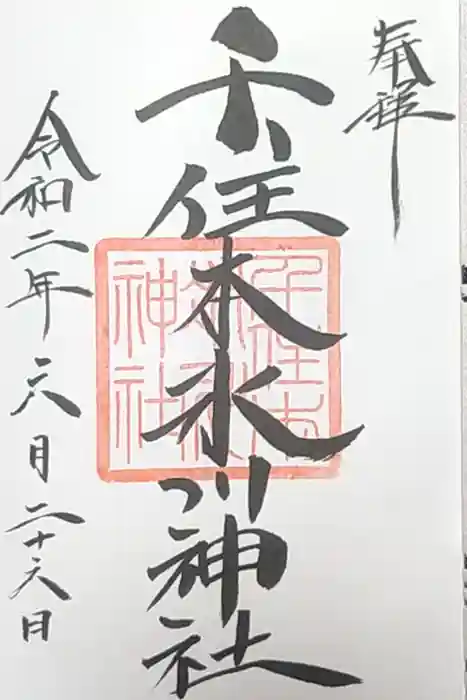 奉拝
千住本氷川神社
令和二年六月二十六日
千住本氷川神社